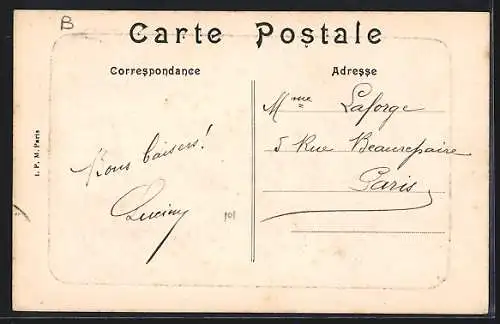 B
Carte Postale
Correspondance
Adresse
L. P. M. Paris
Mme Laforge
5 Rue Beaurepaire
Paris
Bons baisers!
101